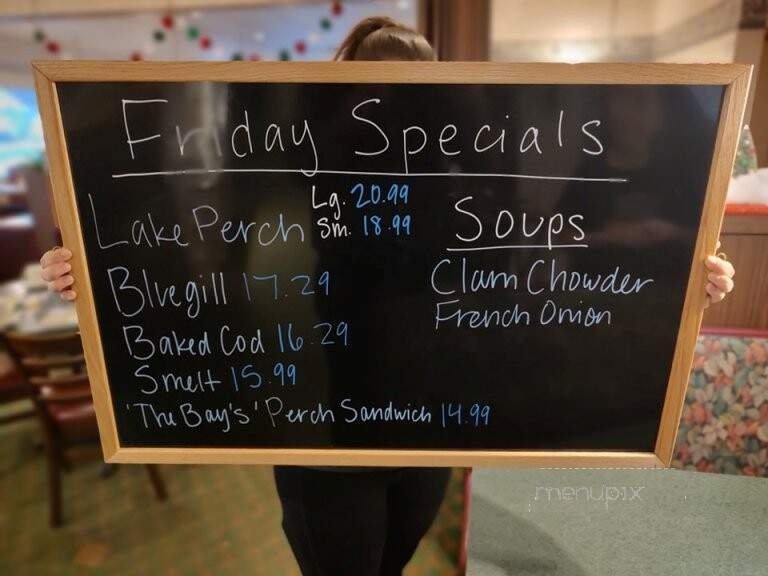 Friday Specials
Lake Perch Lg. 20.99
Sm. 18.99
Bluegill 17.29
Baked Cod 16.29
Smelt 15.99
'The Bay's' Perch Sandwich 14.99
Soups
Clam Chowder
French Onion
menupix